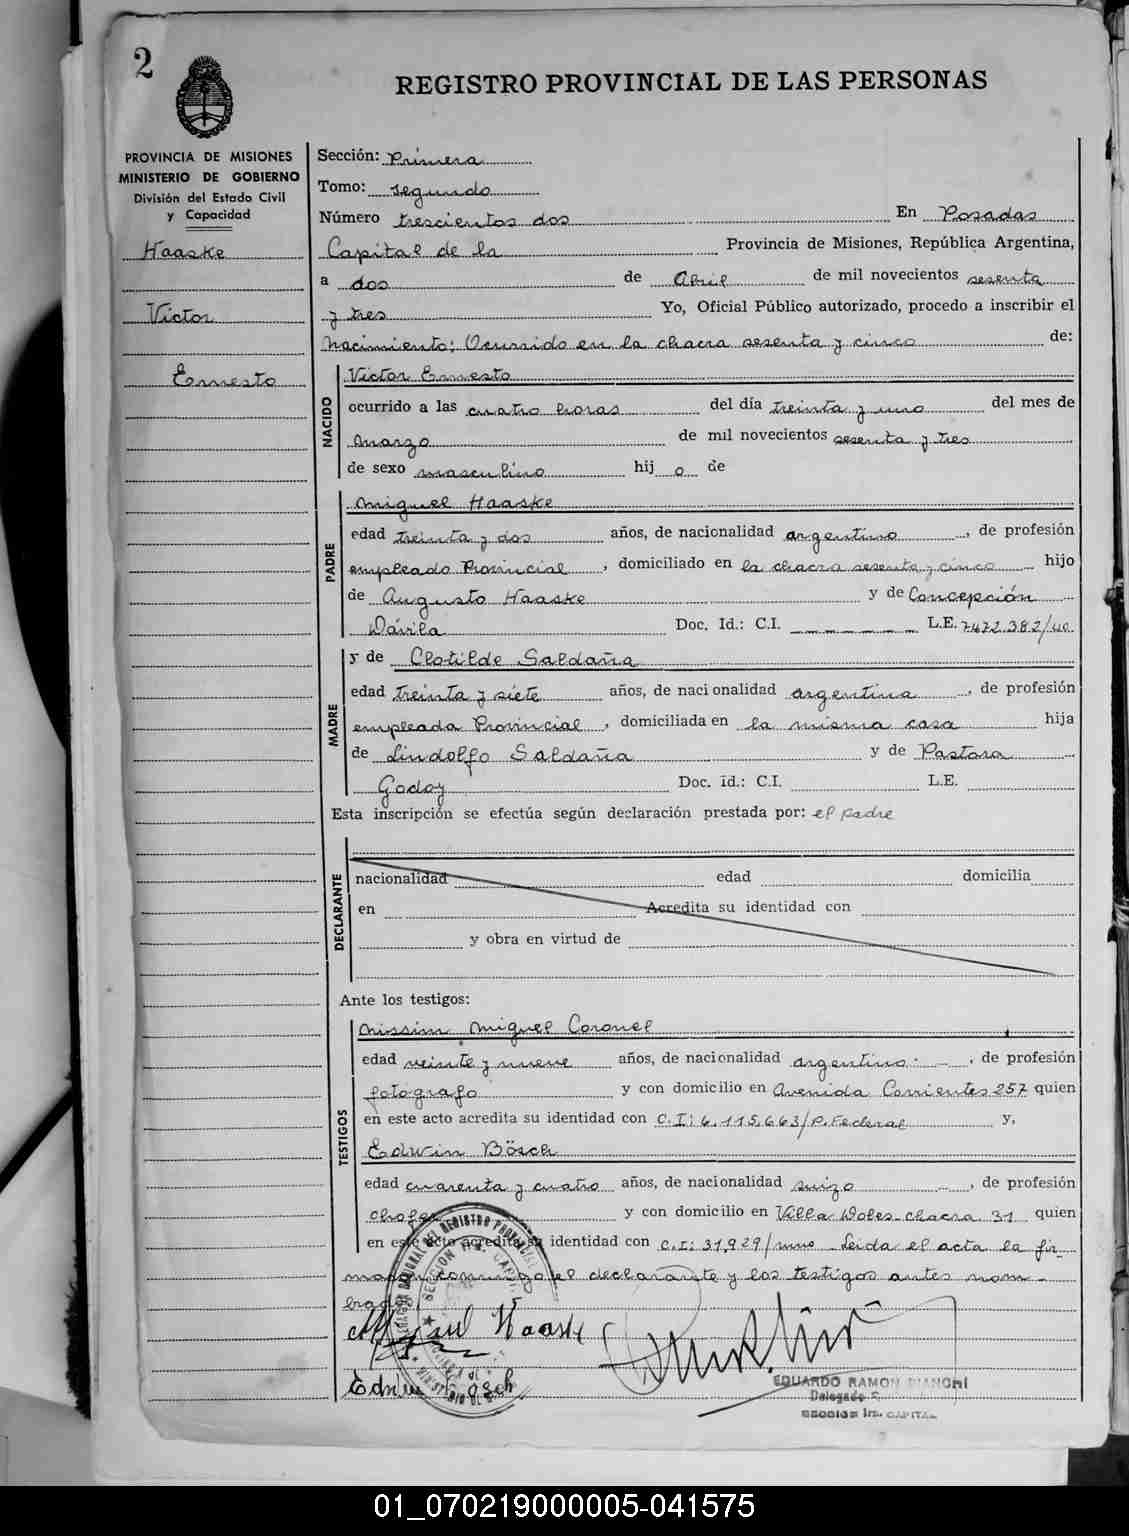 2
REGISTRO PROVINCIAL DE LAS PERSONAS
PROVINCIA DE MISIONES
MINISTERIO DE GOBIERNO
División del Estado Civil
y Capacidad
Haaske
Victor
Ernesto
Sección: Primera
Tomo: segundo
Número trescientos dos En Posadas
Capital de la Provincia de Misiones, República Argentina,
a dos de Abril de mil novecientos sesenta
y tres Yo, Oficial Público autorizado, procedo a inscribir el
nacimiento: Ocurrido en la chacra sesenta y cinco de:
NACIDO
Victor Ernesto
ocurrido a las cuatro horas del día treinta y uno del mes de
marzo de mil novecientos sesenta y tres
de sexo masculino hij o de
PADRE
Miguel Haaske
edad treinta y dos años, de nacionalidad argentino, de profesión
empleado Provincial, domiciliado en la chacra sesenta y cinco hijo
de Augusto Haaske y de Concepción
Dávila Doc. Id.: C.I. L.E. 7472.382/
MADRE
y de Clotilde Saldaña
edad treinta y siete años, de nacionalidad argentina, de profesión
empleada Provincial, domiciliada en la misma casa hija
de Lindolfo Saldaña y de Pastora
Godoy Doc. id.: C.I. L.E.
Esta inscripción se efectúa según declaración prestada por: el padre
DECLARANTE
nacionalidad edad domicilia
en Acredita su identidad con
y obra en virtud de
Ante los testigos:
TESTIGOS
Missim Miguel Coronel
edad veinte y nueve años, de nacionalidad argentino:-, de profesión
fotógrafo y con domicilio en Avenida Corrientes 257 quien
en este acto acredita su identidad con C.I: 6.115.663/P.Federal y,
Edwin Bösch
edad cuarenta y cuatro años, de nacionalidad suizo, de profesión
chofer y con domicilio en Villa chacra 31 quien
en este acto acredita su identidad con C.I: 31.929/mns. Leida el acta la fir-
man conmigo el declarante y los testigos antes nom-
brados
Haaske
Edwin Bösch
EDUARDO RAMON BIANCHI
Delegado
SECCION 1ra. CAPITAL
01_070219000005-041575